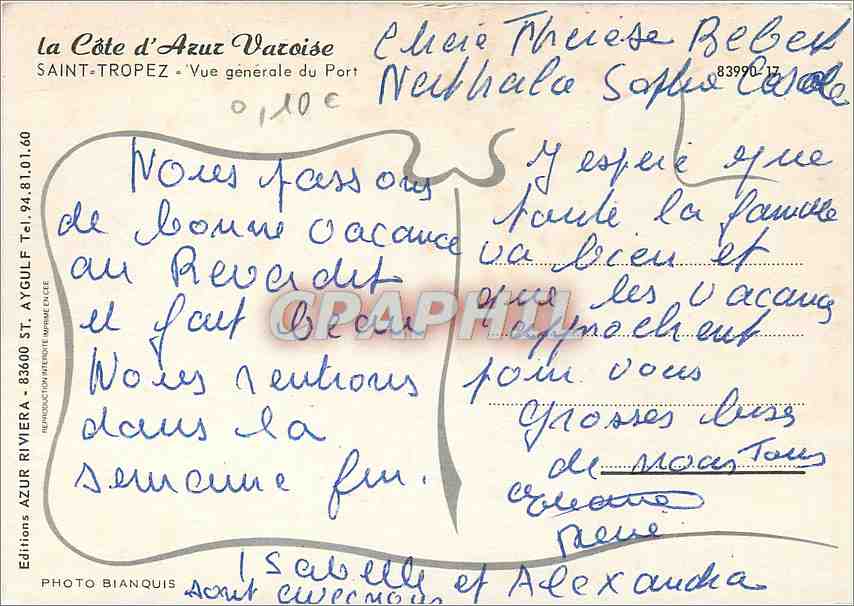 la Côte d'Azur Varoise
SAINT-TROPEZ - Vue générale du Port
83990-17
Therese
Sophie
0,10€
Nous passons
de bonne vacance
au
il fait beau
Nous rentrons
dans la
semaine fin.
J espere que
toute la famille
va bien et
que les vacances
approchent
pour vous
grosses bises
de nous Tous
René
Isabelle et Alexandra
sont avec nous
CPAPHIL
Editions AZUR RIVIERA - 83600 ST. AYGULF Tel. 94.81.01.60
REPRODUCTION INTERDITE IMPRIMÉ EN CEE
PHOTO BIANQUIS